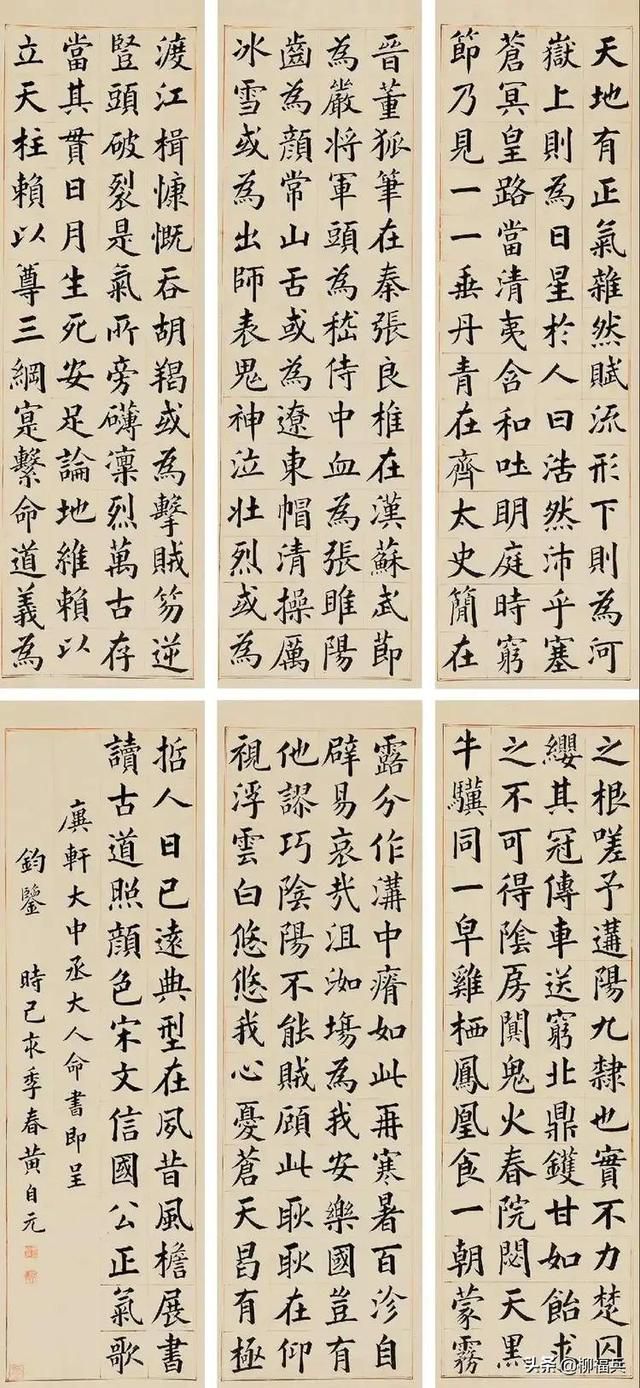 天地有正氣雜然賦流形下則為河
嶽上則為日星於人曰浩然沛乎塞
蒼冥皇路當清夷含和吐明庭時窮
節乃見一一垂丹青在齊太史簡在
晉董狐筆在秦張良椎在漢蘇武節
為嚴將軍頭為嵇侍中血為張睢陽
齒為顏常山舌或為遼東帽清操厲
冰雪或為出師表鬼神泣壯烈或為
渡江楫慷慨吞胡羯或為擊賊笏逆
豎頭破裂是氣所旁礴凜烈萬古存
當其貫日月生死安足論地維賴以
立天柱賴以尊三綱寔繫命道義為
之根嗟予遘陽九隸也實不力楚囚
纓其冠傳車送窮北鼎鑊甘如飴求
之不可得陰房闃鬼火春院閟天黑
牛驥同一皁雞栖鳳凰食一朝蒙霧
露分作溝中瘠如此再寒暑百沴自
辟易哀哉沮洳場為我安樂國豈有
他謬巧陰陽不能賊顧此耿耿在仰
視浮雲白悠悠我心憂蒼天曷有極
哲人日已遠典型在夙昔風檐展書
讀古道照顏色宋文信國公正氣歌
廙軒大中丞大人命書即呈
鈞鑒 時己亥季春黃自元
头条 @柳福兵